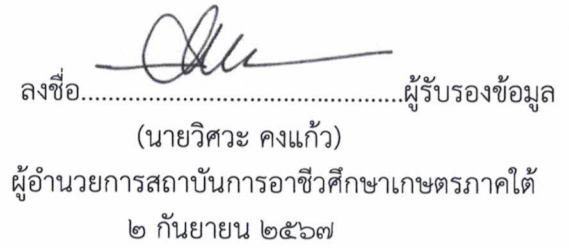 ลงชื่อ................................................ผู้รับรองข้อมูล
(นายวิศวะ คงแก้ว)
ผู้อำนวยการสถาบันการอาชีวศึกษาเกษตรภาคใต้
๒ กันยายน ๒๕๖๗